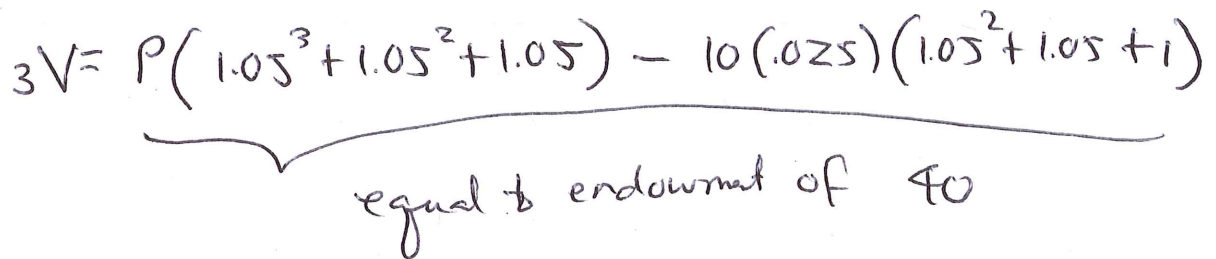 ₃V = P(1.05³+1.05²+1.05) − 10(.025)(1.05²+1.05+1)
equal to endowmat of 40